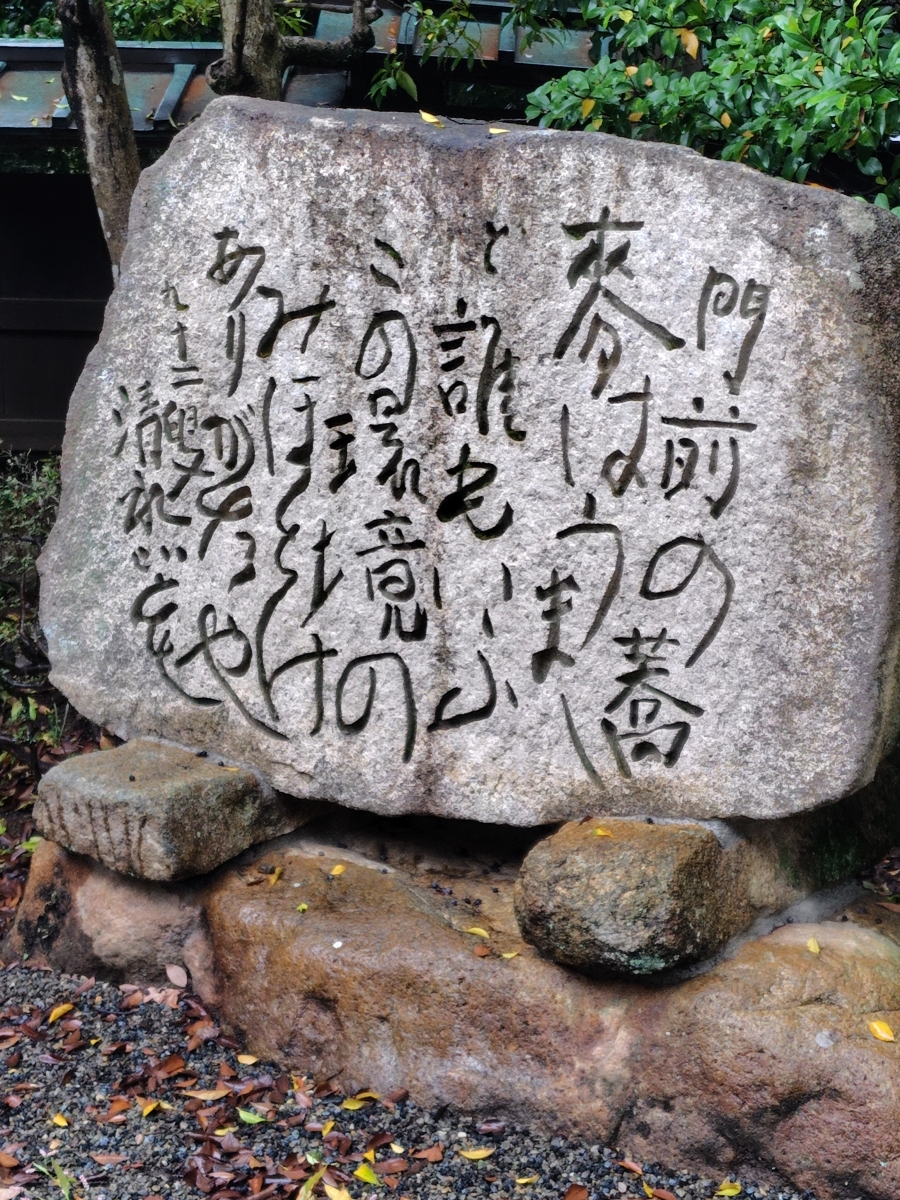 門前の蕎
麥はうまし
と誰もいふ
この環境の
みほとけ
ありがたや
九十二叟
清水比庵